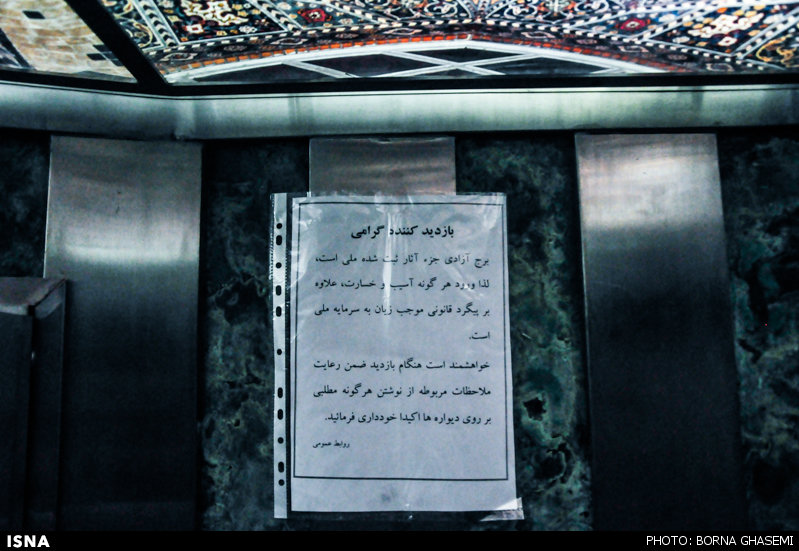 بازدید کننده گرامی
برج آزادی جزء آثار ثبت شده ملی است،
لذا ورود هر گونه آسیب و خسارت، علاوه
بر پیگرد قانونی موجب زیان به سرمایه ملی
است.
خواهشمند است هنگام بازدید ضمن رعایت
ملاحظات مربوطه از نوشتن هرگونه مطلبی
بر روی دیواره ها اکیدا خودداری فرمائید.
روابط عمومی
ISNA
PHOTO: BORNA GHASEMI